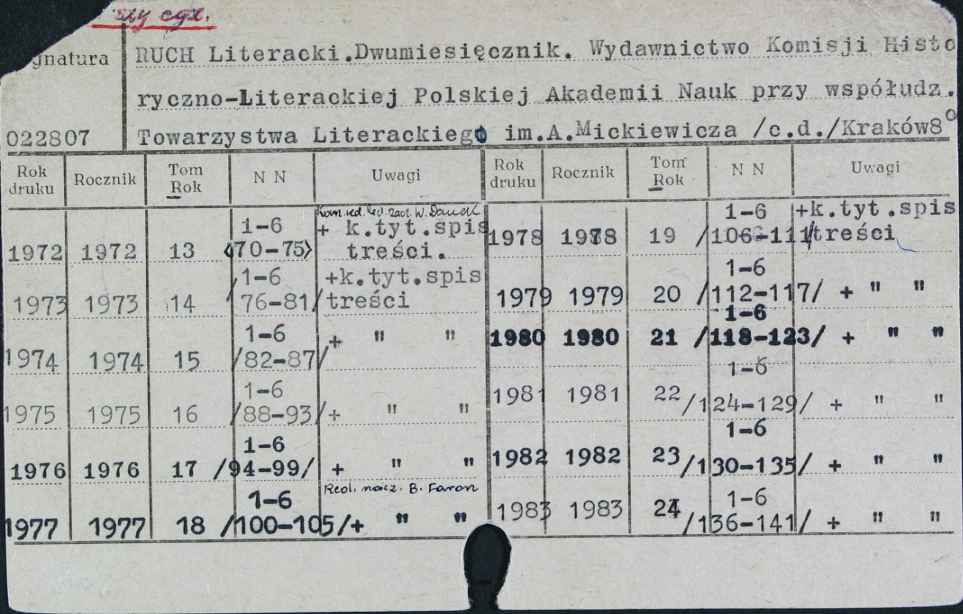 egz.
gnatura
RUCH Literacki.Dwumiesięcznik. Wydawnictwo Komisji Histo
ryczno-Literackiej Polskiej Akademii Nauk przy współudz.
022807 Towarzystwa Literackiego im.A.Mickiewicza /c.d./Kraków8°
Rok druku Rocznik Tom Rok N N Uwagi
1972 1972 13 1-6 /70-75/ + k.tyt.spis treści.
1973 1973 14 1-6 /76-81/ +k.tyt.spis treści
1974 1974 15 1-6 /82-87/ + " "
1975 1975 16 1-6 /88-93/ + " "
1976 1976 17 1-6 /94-99/ + " "
Red. nacz. B. Faron
1977 1977 18 1-6 /100-105/+ " "
Rok druku Rocznik Tom Rok N N Uwagi
1978 1978 19 1-6 /106-111/ +k.tyt.spis treści
1979 1979 20 1-6 /112-117/ + " "
1980 1980 21 1-6 /118-123/ + " "
1981 1981 22 1-6 /124-129/ + " "
1982 1982 23 1-6 /130-135/ + " "
1983 1983 24 1-6 /136-141/ + " "